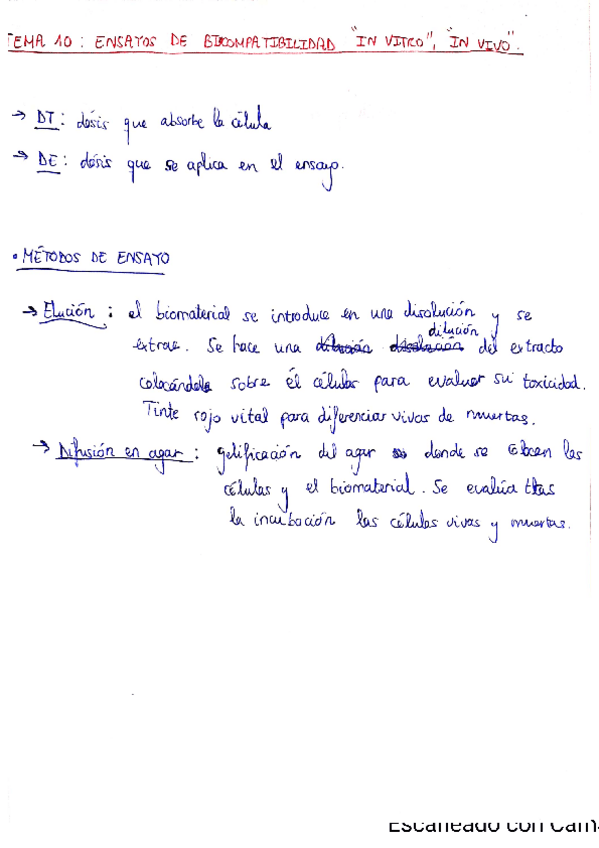 TEMA 10: ENSAYOS DE BIOCOMPATIBILIDAD "IN VITRO", "IN VIVO".
→ DT: dosis que absorbe la célula
→ DE: dosis que se aplica en el ensayo.
• MÉTODOS DE ENSAYO
→ Elución: el biomaterial se introduce en una disolución y se
extrae. Se hace una dilución del extracto
colocándolo sobre él células para evaluar su toxicidad.
Tinte rojo vital para diferenciar vivas de muertas.
→ Difusión en agar: gelificación del agar donde se colocan las
células y el biomaterial. Se evalúa tras
la incubación las células vivas y muertas.
Escaneado con Cam